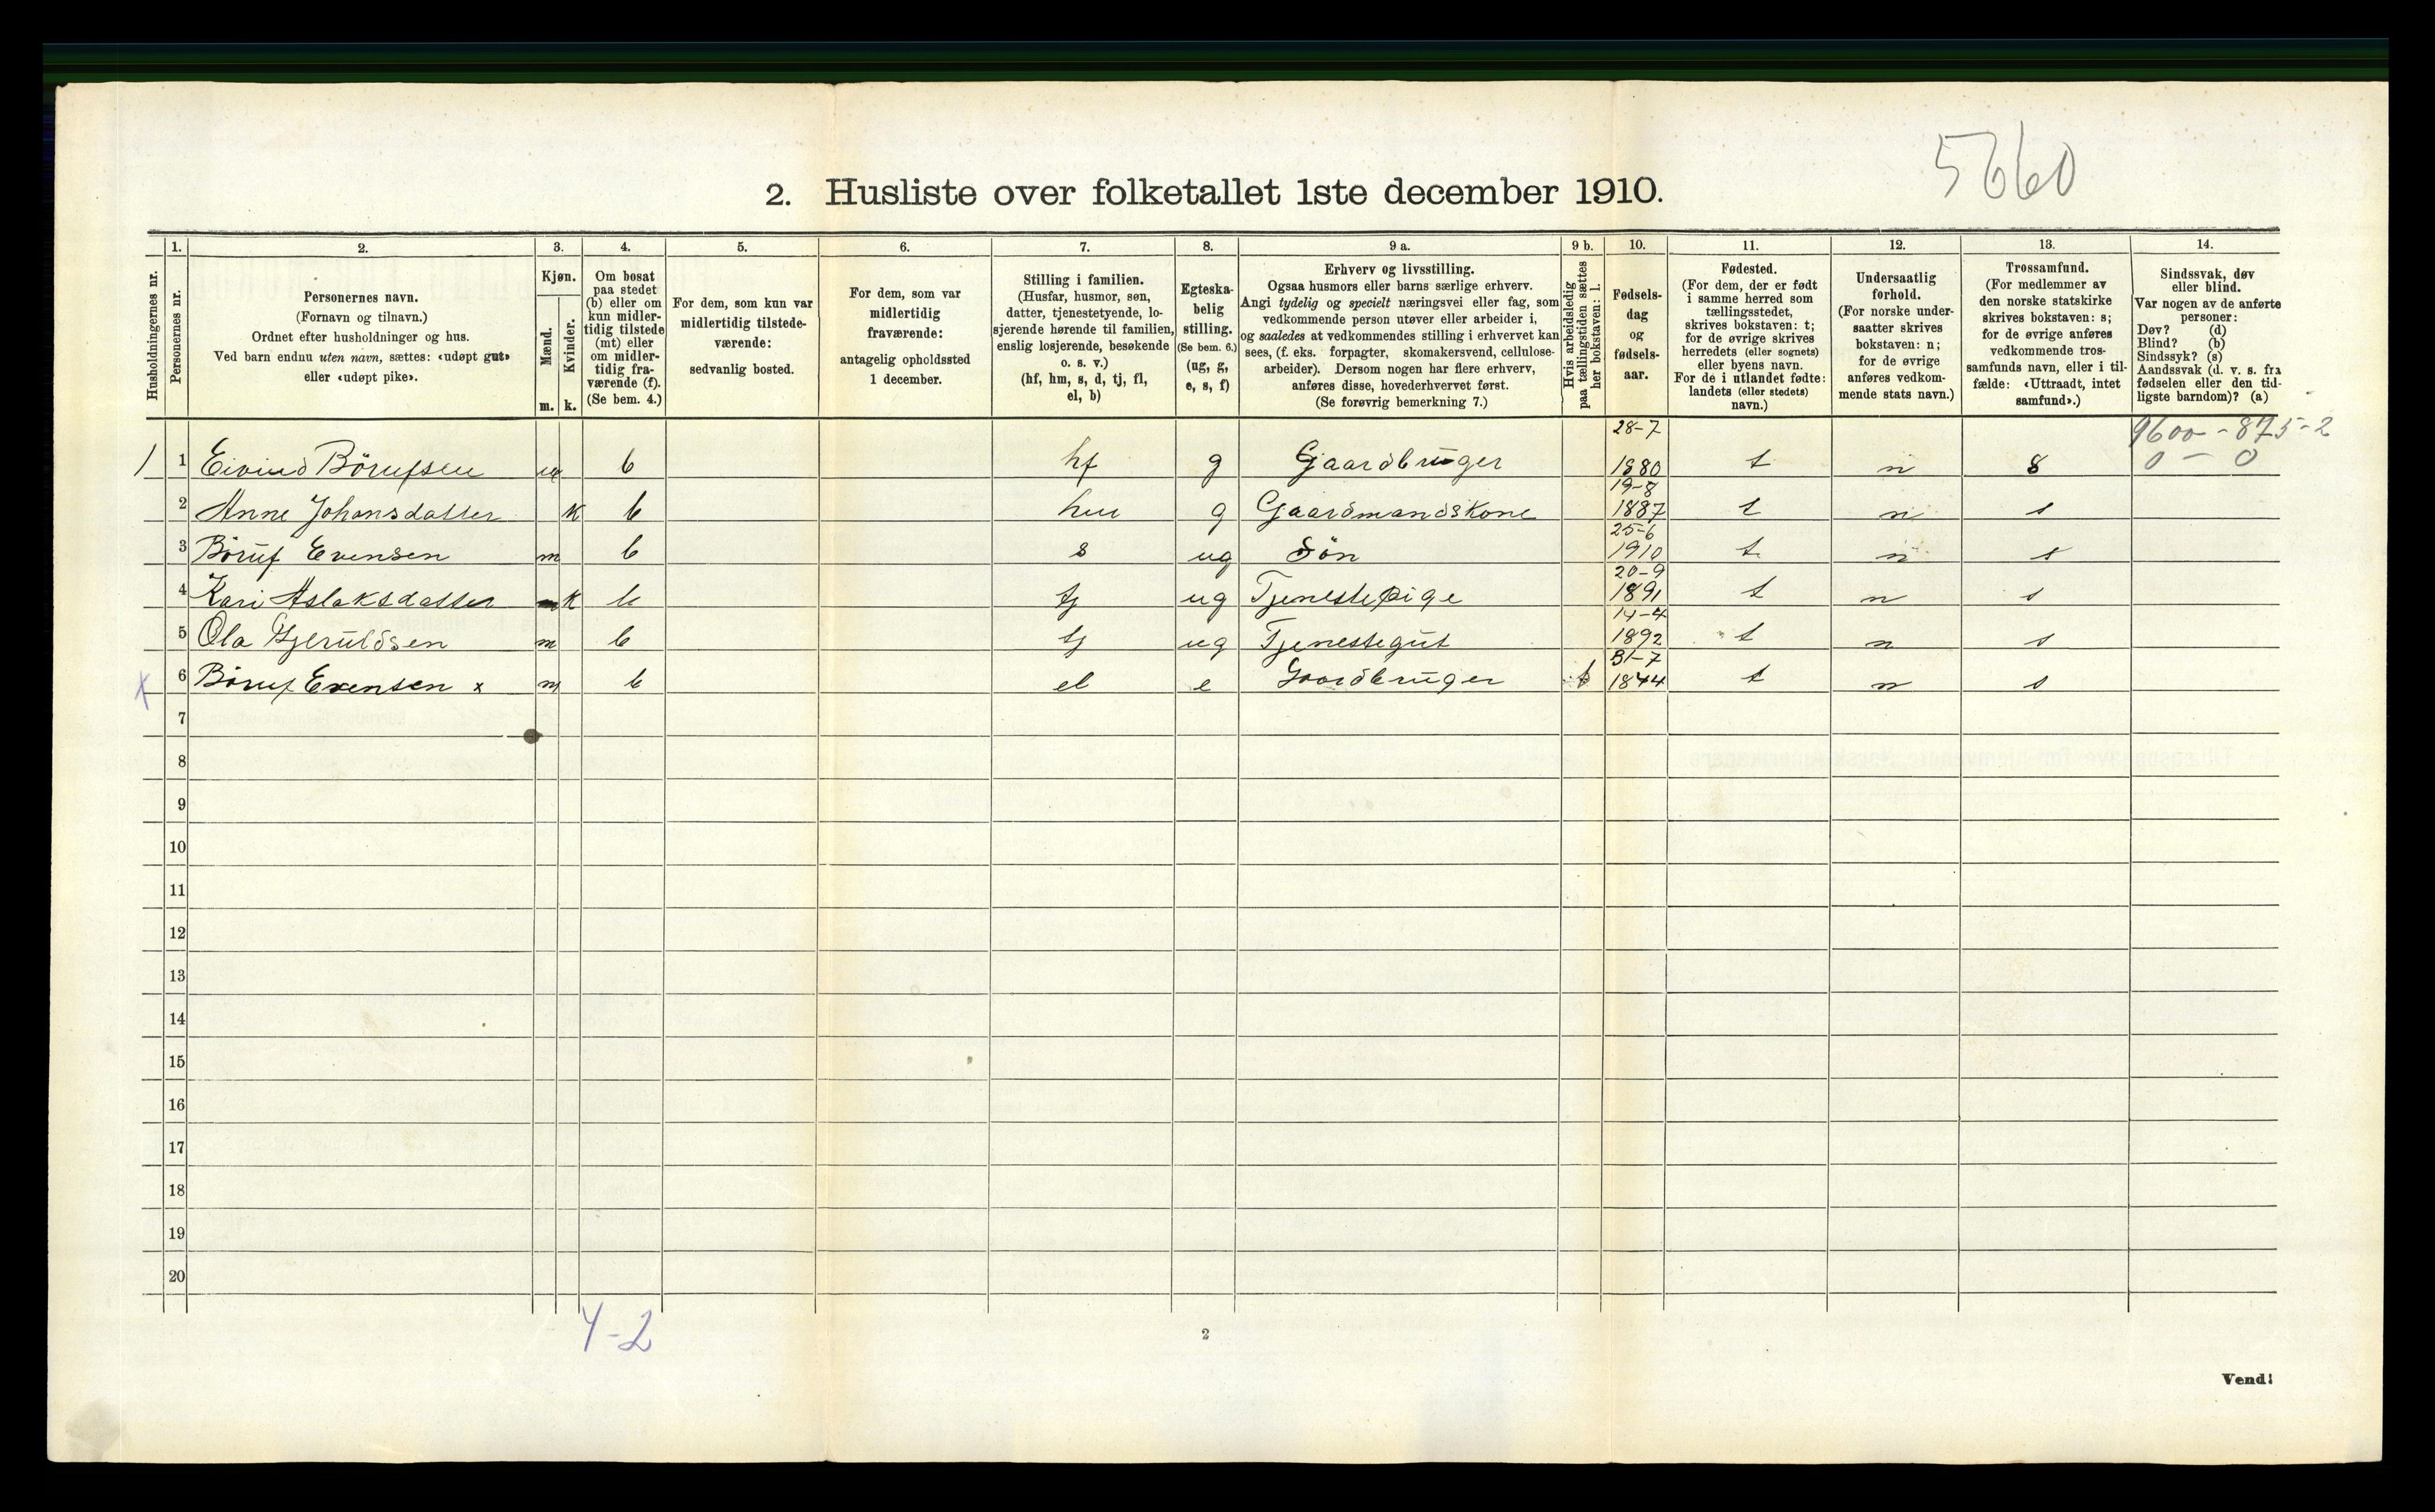 5660
2. Husliste over folketallet 1ste december 1910.
1. 2. 3. 4. 5. 6. 7. 8. 9 a. 9 b. 10. 11. 12. 13. 14.
Husholdningernes nr.
Personernes nr.
Personernes navn.
(Fornavn og tilnavn.)
Ordnet efter husholdninger og hus.
Ved barn endnu uten navn, sættes: «udøpt gut»
eller «udøpt pike».
Kjøn.
Mænd.
Kvinder.
m. k.
Om bosat
paa stedet
(b) eller om
kun midler-
tidig tilstede
(mt) eller
om midler-
tidig fra-
værende (f).
(Se bem. 4.)
For dem, som kun var
midlertidig tilstede-
værende:
sedvanlig bosted.
For dem, som var
midlertidig
fraværende:
antagelig opholdssted
1 december.
Stilling i familien.
(Husfar, husmor, søn,
datter, tjenestetyende, lo-
sjerende hørende til familien,
enslig losjerende, besøkende
o. s. v.)
(hf, hm, s, d, tj, fl,
el, b)
Egteska-
belig
stilling.
(Se bem. 6.)
(ug, g,
e, s, f)
Erhverv og livsstilling.
Ogsaa husmors eller barns særlige erhverv.
Angi tydelig og specielt næringsvei eller fag, som
vedkommende person utøver eller arbeider i,
og saaledes at vedkommendes stilling i erhvervet kan
sees, (f. eks. forpagter, skomakersvend, cellulose-
arbeider). Dersom nogen har flere erhverv,
anføres disse, hovederhvervet først.
(Se forøvrig bemerkning 7.)
Hvis arbeidsledig
paa tællingstiden sættes
her bokstaven: l.
Fødsels-
dag
og
fødsels-
aar.
Fødested.
(For dem, der er født
i samme herred som
tællingsstedet,
skrives bokstaven: t;
for de øvrige skrives
herredets (eller sognets)
eller byens navn.
For de i utlandet fødte:
landets (eller stedets)
navn.)
Undersaatlig
forhold.
(For norske under-
saatter skrives
bokstaven: n;
for de øvrige
anføres vedkom-
mende stats navn.)
Trossamfund.
(For medlemmer av
den norske statskirke
skrives bokstaven: s;
for de øvrige anføres
vedkommende tros-
samfunds navn, eller i til-
fælde: «Uttraadt, intet
samfund».)
Sindssvak, døv
eller blind.
Var nogen av de anførte
personer:
Døv? (d)
Blind? (b)
Sindssyk? (s)
Aandssvak (d. v. s. fra
fødselen eller den tid-
ligste barndom)? (a)
28-7 9600 - 875-2
1 1 Eivind Börufsen m b hf g Gaardbruger 1880 t n s 0 - 0
19-8
2 Anne Johansdatter k b hm g Gaardmandskone 1887 t n s
25-6
3 Böruf Evensen m b s ug Søn 1910 t n s
20-9
4 Kari Aslaksdatter k b tj ug Tjenestepige 1891 t n s
14-4
5 Ola Gjeruldsen m b tj ug Tjenestegut 1892 t n s
31-7
x 6 Böruf Evensen x m b el e Gaardbruger 1844 t n s
7
8
9
10
11
12
13
14
15
16
17
18
19
20
4-2
2
Vend!